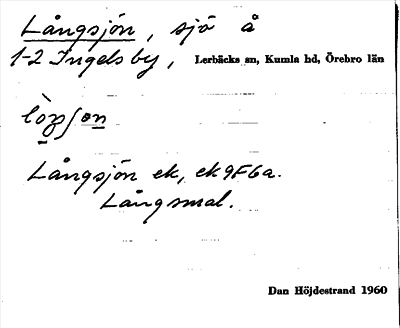 Långsjön, sjö å
1-2 Ingelsby, Lerbäcks sn, Kumla hd, Örebro län
Långsjön ek, ek 9F6a.
Långsmal.
Dan Höjdestrand 1960